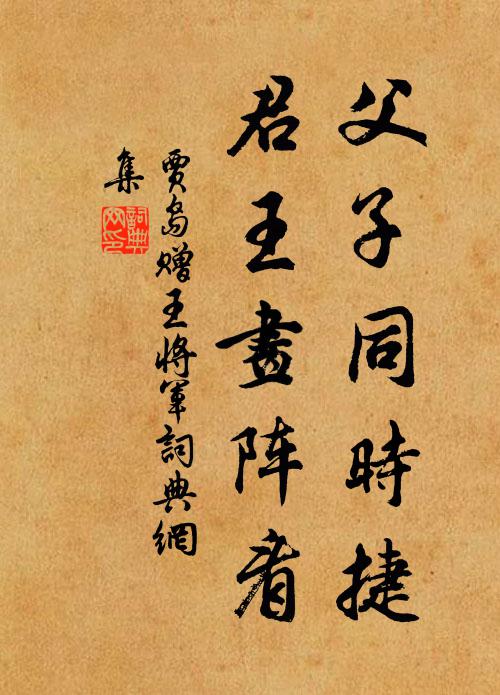 父子同時捷
君王畫阵看
賈島贈王將軍詞典網
集
詞典网印